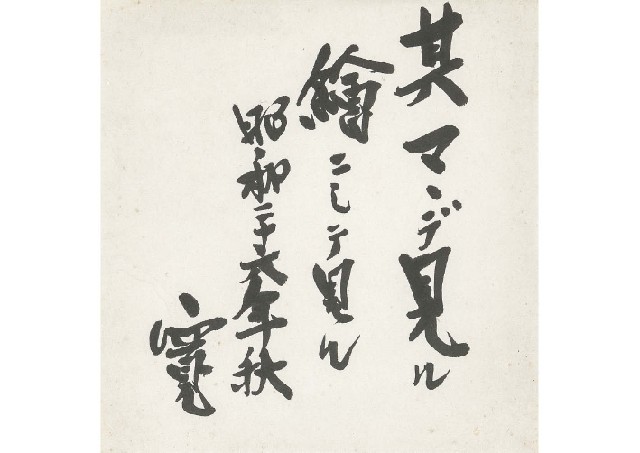 其マヽデ見ル
繪ニシテ見ル
昭和二十六年秋
寛